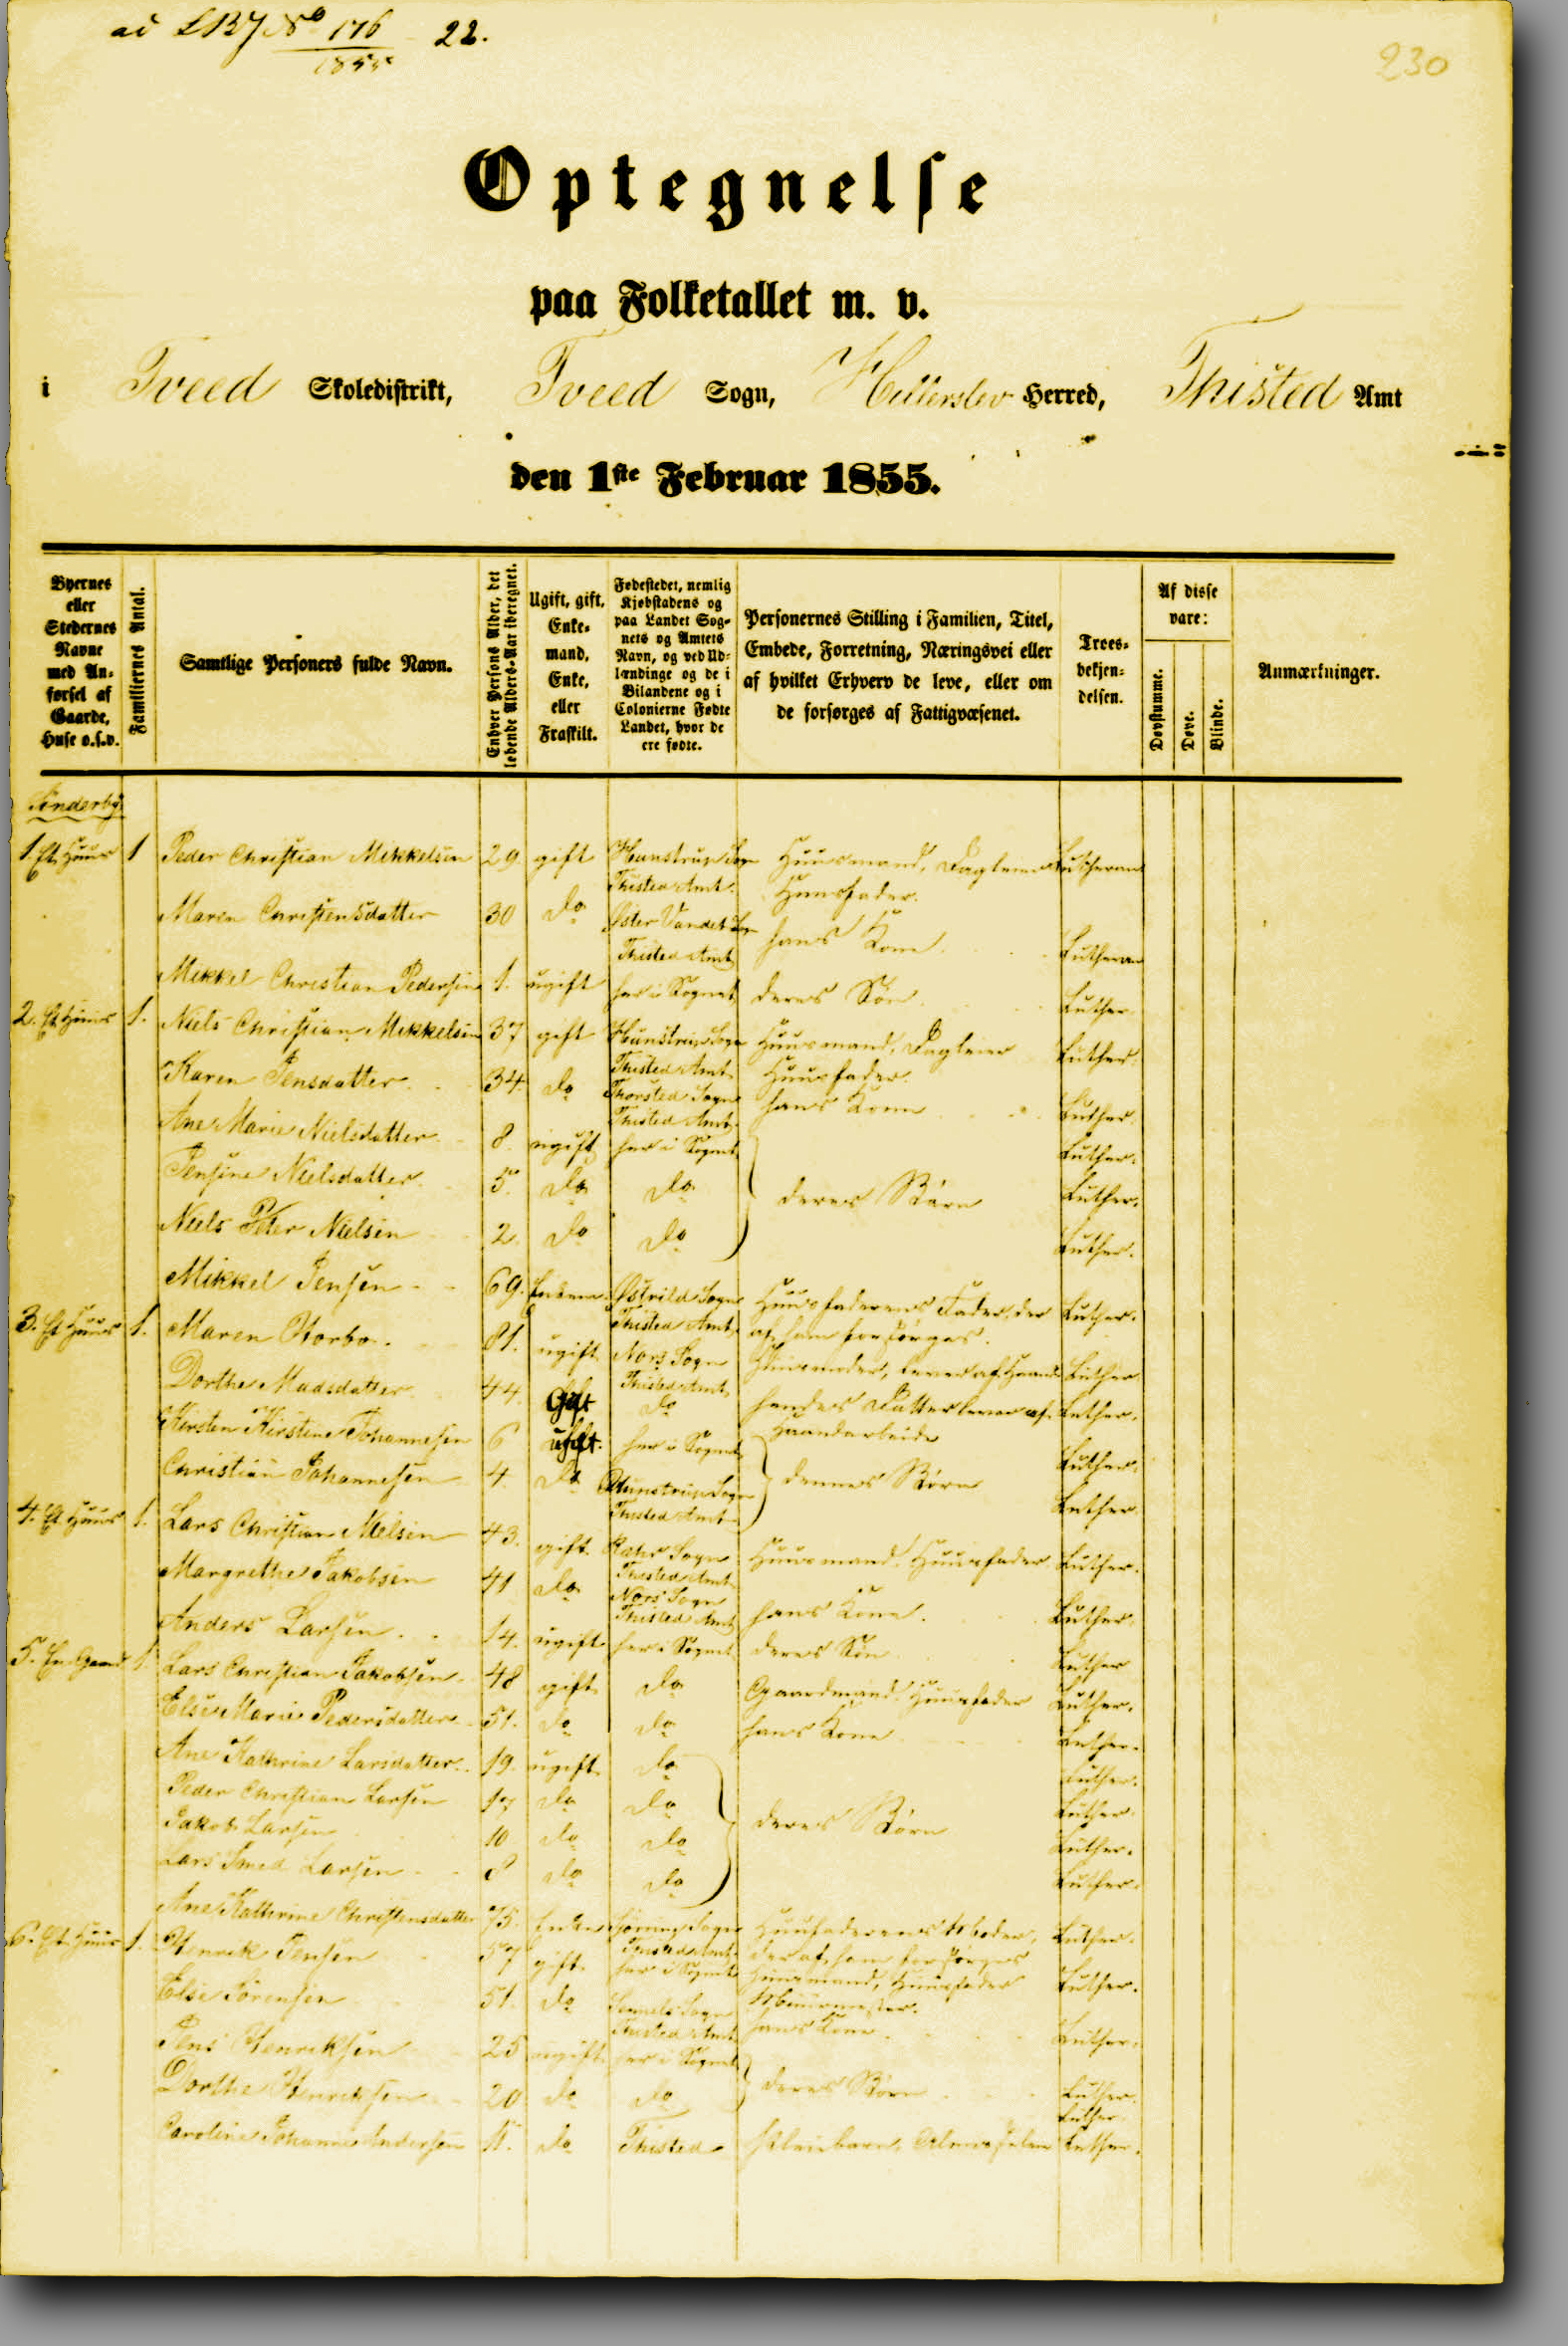 ad LBY No 176 22.
1855
230
Optegnelse
paa Folketallet m. v.
i Tveed Skoledistrikt, Tveed Sogn, Hillerslev Herred, Thisted Amt
den 1ste Februar 1855.
Byernes eller Stedernes Navne med Anførsel af Gaarde, Huse o.s.v.
Familiernes Antal.
Samtlige Personers fulde Navn.
Enhver Persons Alder, det løbende Alders-Aar iberegnet.
Ugift, gift, Enkemand, Enke, eller Fraskilt.
Fødestedet, nemlig Kjøbstadens og paa Landet Sognets og Amtets Navn, og ved Udlændinge og de i Bilandene og i Colonierne Fødte Landet, hvor de ere fødte.
Personernes Stilling i Familien, Titel, Embede, Forretning, Næringsvei eller af hvilket Erhverv de leve, eller om de forsørges af Fattigvæsenet.
Troesbekjendelsen.
Af disse vare:
Døvstumme.
Døve.
Blinde.
Anmærkninger.
Sønderby
1. Et Huus 1 Peder Christian Mikkelsen 29 gift Hunstrup Sogn Huusmand, Dagleier Lutheran
Thisted Amt. Huusfader.
Maren Christensdatter 30 do Øster Vandet Sogn hans Kone. Lutheran
Thisted Amt
Mikkel Christian Pedersen 1. ugift her i Sognet deres Søn Luther.
2. Et Huus 1. Niels Christian Mikkelsen 37 gift Hunstrup Sogn Huusmand, Dagleier Luther.
Thisted Amt. Huusfader.
Karen Jensdatter 34. do Thorsted Sogn hans Kone Luther.
Thisted Amt.
Ane Marie Nielsdatter 8. ugift her i Sognet Luther.
Jensine Nielsdatter 5. do do deres Børn Luther.
Niels Peter Nielsen 2. do do Luther.
Mikkel Jensen 69. Enkem. Østrild Sogn Huusfaderens Fader, der Luther.
Thisted Amt. af ham forsørges.
3. Et Huus 1. Maren 81. ugift Nors Sogn Huusmoder, lever af Haand Luther
Thisted Amt,
Dorthe Madsdatter 44. Gift do hendes Datter lever af Luther.
Haandarbeide
Kirsten Kirstine Johannesen 6 ugift. her i Sognet Luther.
Christian Johannesen 4. do Hunstrup Sogn dennes Børn Luther.
Thisted Amt
4. Et Huus 1. Lars Christian Nielsen 43. gift Sogn Huusmand. Huusfader Luther.
Thisted Amt.
Margrethe Jakobsen 41 do Nors Sogn hans Kone. Luther.
Thisted Amt
Anders Larsen 14. ugift her i Sognet deres Søn Luther
5. En Gaard 1. Lars Christian Jakobsen 48 gift do Gaardmand. Huusfader Luther.
Else Marie Pedersdatter 51. do do hans Kone Luther.
Ane Kathrine Larsdatter 19. ugift do Luther.
Peder Christian Larsen 17 do do deres Børn Luther.
Jakob Larsen 10 do do Luther.
Lars Smed Larsen 8 do do Luther.
Ane Kathrine Christensdatter 75. Enke Sjørring Sogn Huusfaderens Moder, Luther.
Thisted Amt. der af ham forsørges
6. Et Huus 1. Henrik Jensen 57 gift her i Sognet Huusmand, Huusfader Luther.
Else Sørensen 51. do Sennels Sogn hans Kone Luther.
Thisted Amt.
Jens Henriksen 25 ugift her i Sognet deres Børn Luther.
Dorthe Henriksen 20 do do Luther.
Caroline Johanne Andersen 11. do Thisted Pleiebarn, Luther.